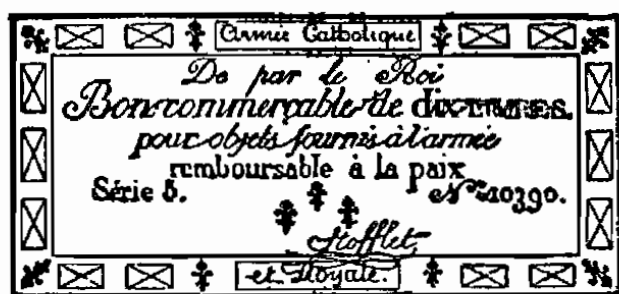 Armée Catholique
De par le Roi
Bon commerçable de dix LIVRES.
pour objets fournis à l'armée
remboursable à la paix
Série 5. Nº. 10390.
Stofflet
et Royale.